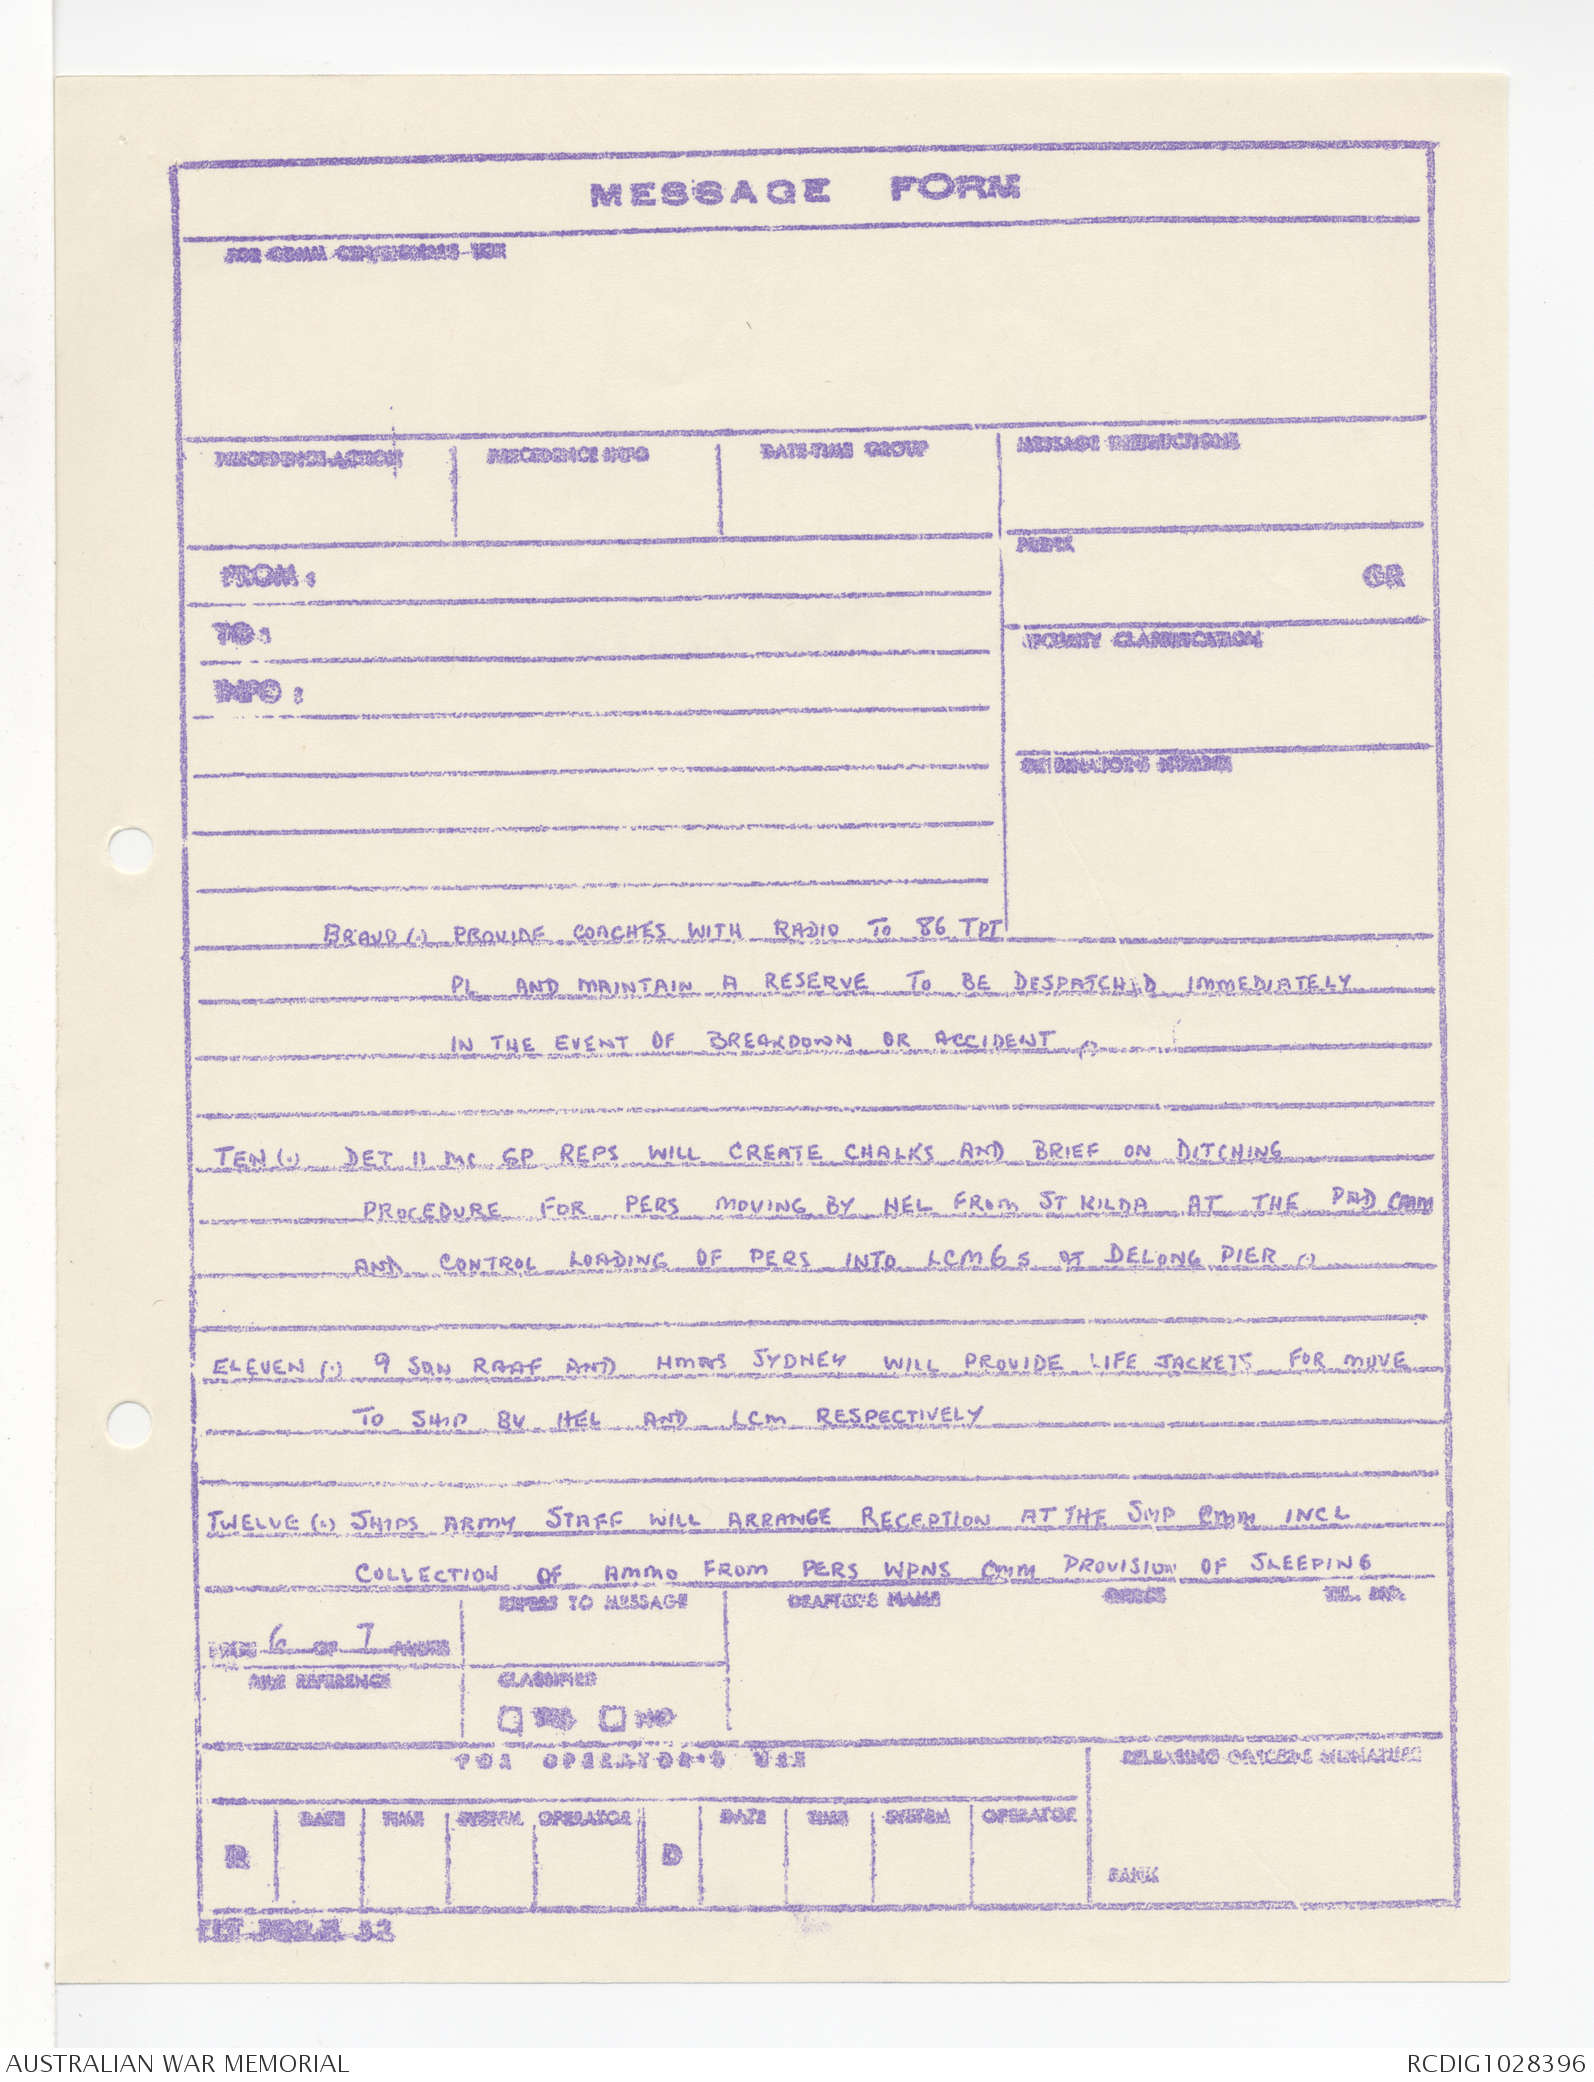 MESSAGE FORM
FOR COMM CEN/SIGNALS USE
PRECEDENCE-ACTION PRECEDENCE INFO DATE-TIME GROUP MESSAGE INSTRUCTIONS
FROM :
PREFIX
GR
TO :
SECURITY CLASSIFICATION
INFO :
ORIGINATOR'S NUMBER
BRAVO (.) PROVIDE COACHES WITH RADIO TO 86 TPT
PL AND MAINTAIN A RESERVE TO BE DESPATCHED IMMEDIATELY
IN THE EVENT OF BREAKDOWN OR ACCIDENT (.)
TEN (.) DET 11 MC GP REPS WILL CREATE CHALKS AND BRIEF ON DITCHING
PROCEDURE FOR PERS MOVING BY HEL FROM ST KILDA AT THE PAD CMM
AND CONTROL LOADING OF PERS INTO LCM6s AT DELONG PIER (.)
ELEVEN (.) 9 SQN RAAF AND HMAS SYDNEY WILL PROVIDE LIFE JACKETS FOR MOVE
TO SHIP BY HEL AND LCM RESPECTIVELY
TWELVE (.) SHIPS ARMY STAFF WILL ARRANGE RECEPTION AT THE SHIP CMM INCL
COLLECTION OF AMMO FROM PERS WPNS CMM PROVISION OF SLEEPING
PAGE 6 OF 7 PAGES
REFERS TO MESSAGE DRAFTER'S NAME OFFICE TEL. NO.
FILE REFERENCE CLASSIFIED
YES NO
FOR OPERATOR'S USE RELEASING OFFICERS SIGNATURE
R DATE TIME SYSTEM OPERATOR D DATE TIME SYSTEM OPERATOR
RANK
AUSTRALIAN WAR MEMORIAL RCDIG1028396